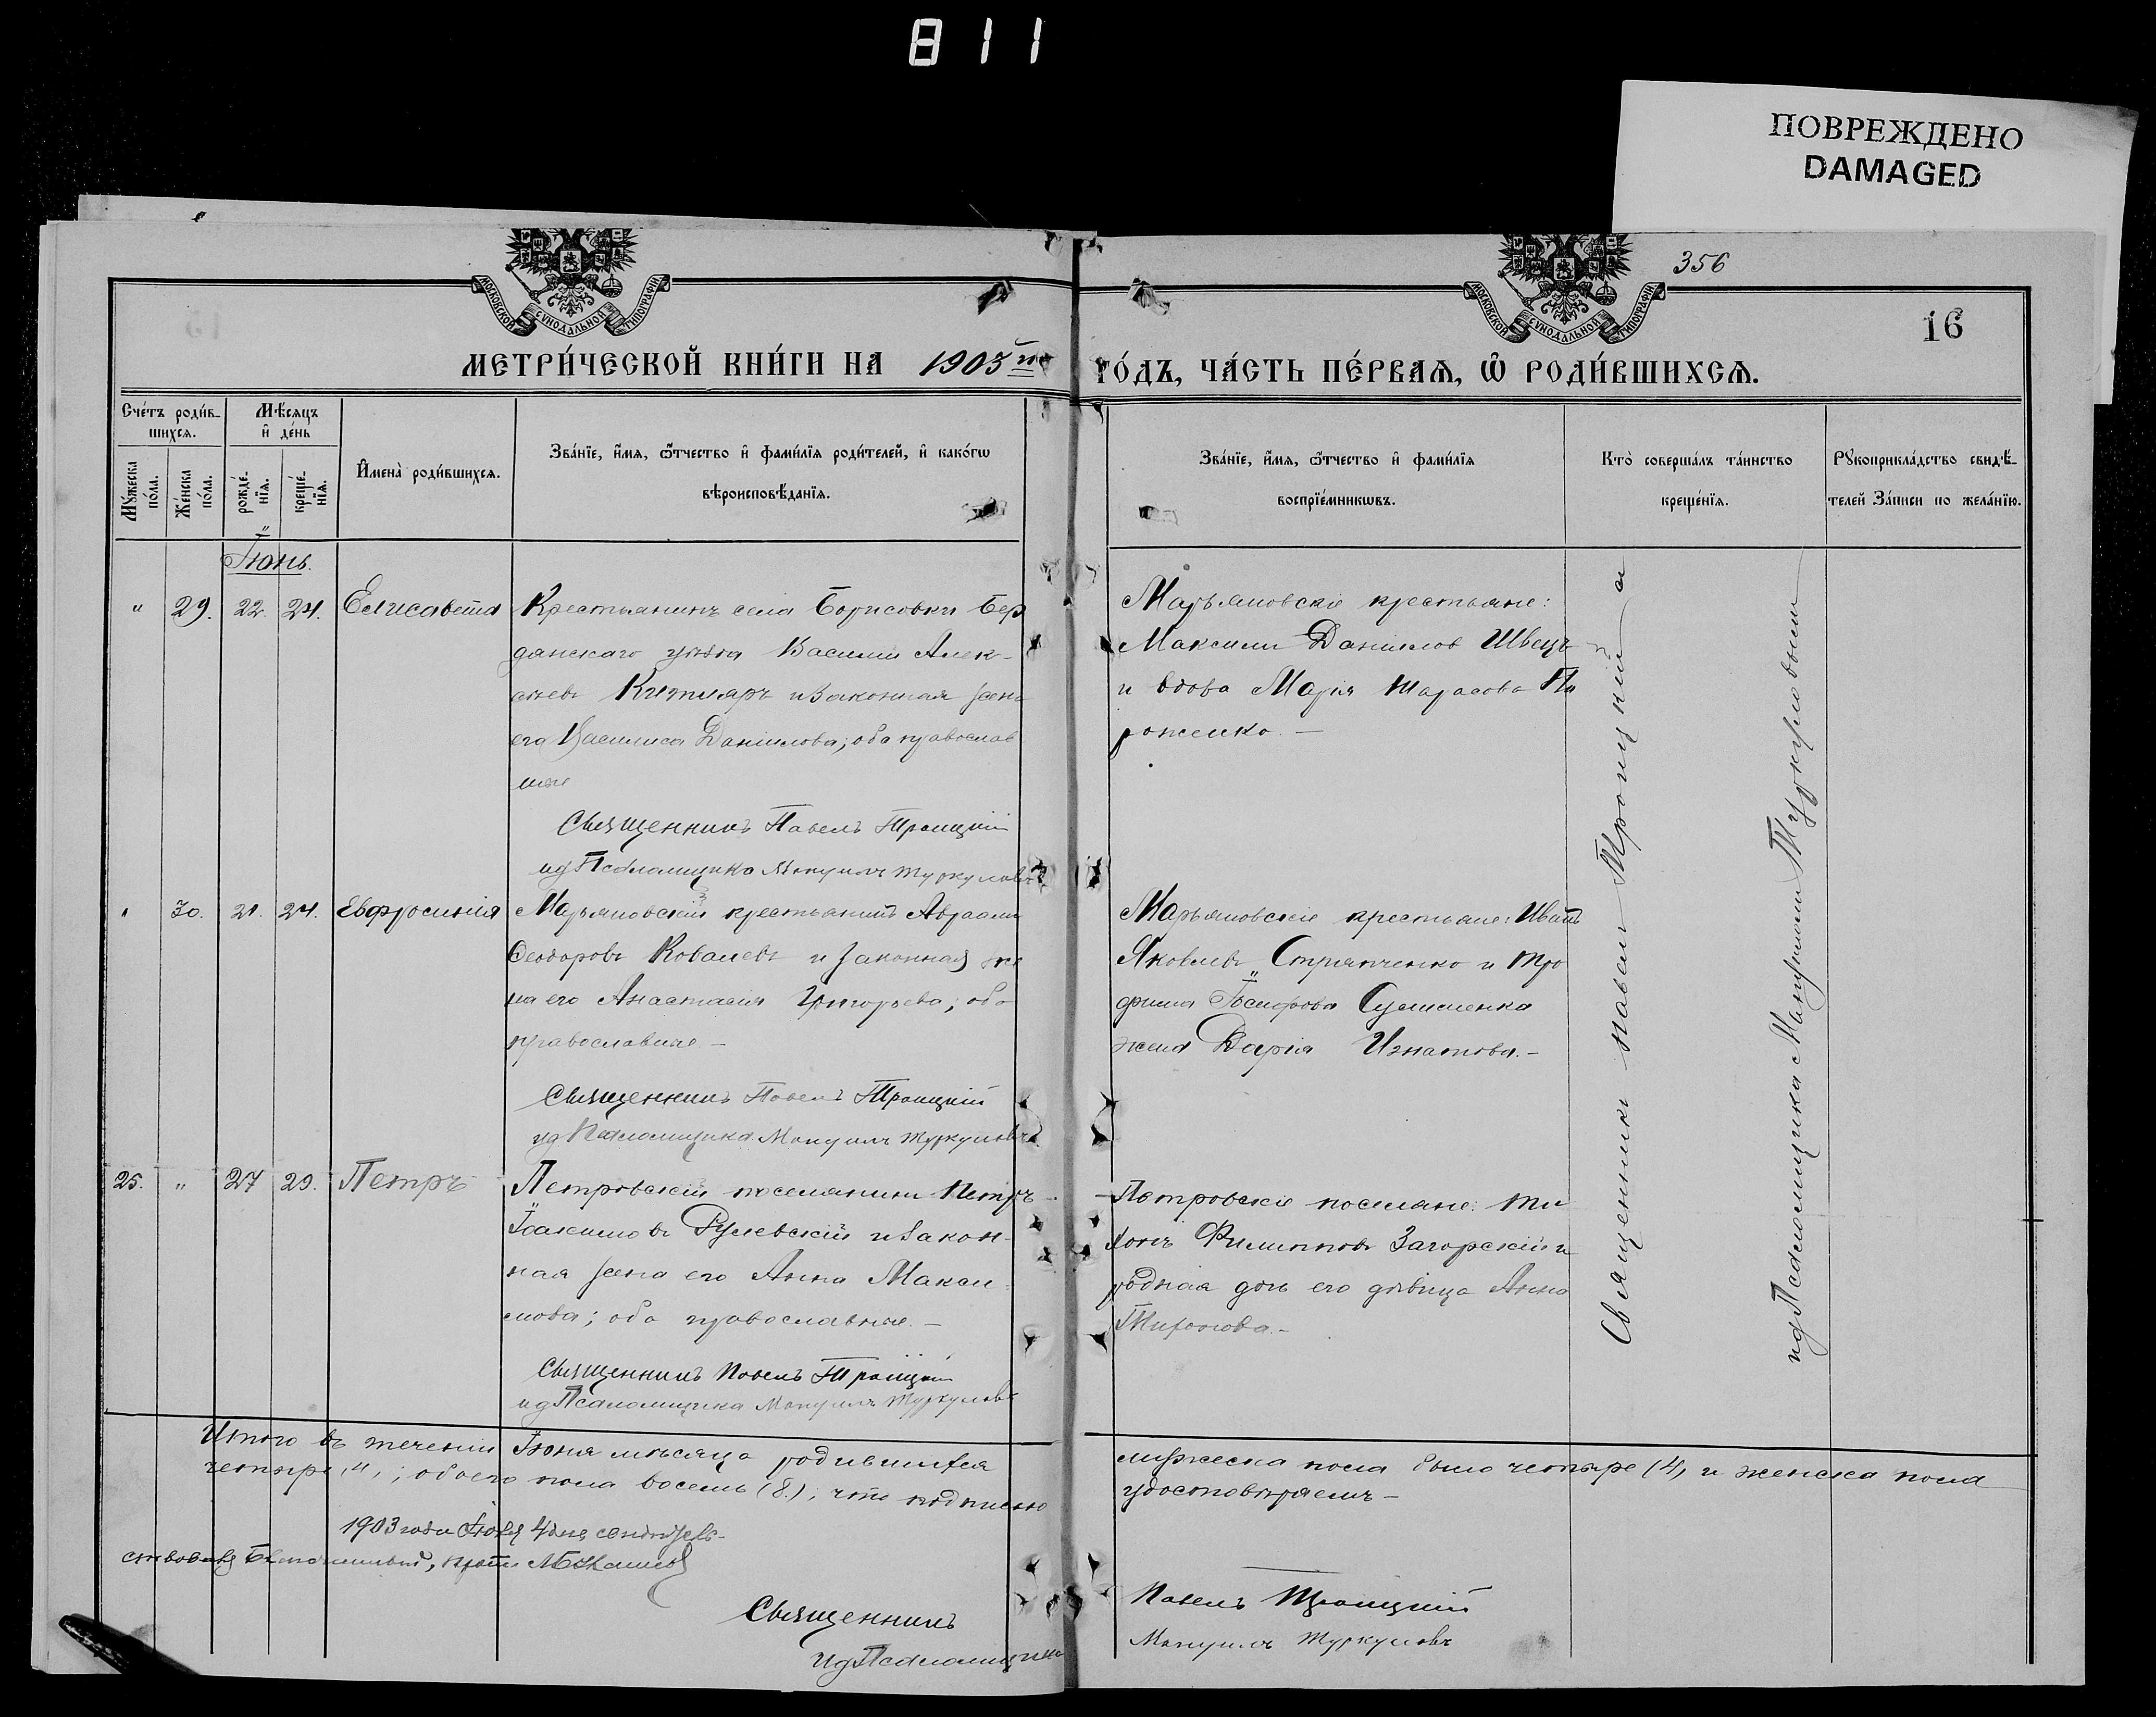 811
ПОВРЕЖДЕНО
DAMAGED
356
16
МОСКОВСКОЙ СѴНОДАЛЬНОЙ ТИПОГРАФІИ
МОСКОВСКОЙ СѴНОДАЛЬНОЙ ТИПОГРАФІИ
МЕТРИ́ЧЕСКОЙ КНИ́ГИ НА 1903 й
ГО́ДЪ, ЧА́СТЬ ПЕ́РВАѦ, Ѡ҆ РОДИ́ВШИХСѦ.
Сче́тъ роди́в-
шихсѧ.
Мѣ́сѧцъ
и҆ де́нь
Мꙋ́жеска
по́ла.
Же́нска
по́ла.
рожде́-
нїѧ.
креще́-
нїѧ.
И҆мена̀ роди́вшихсѧ.
Зва́нїе, и҆́мѧ, ѻ҆́тчество и҆ фами́лїѧ роди́телей, и҆ како́гѡ
вѣроисповѣ́данїѧ.
Зва́нїе, и҆́мѧ, ѻ҆́тчество и҆ фами́лїѧ
воспрїе́мникѡвъ.
Кто̀ соверша́лъ та́инство
креще́нїѧ.
Рꙋкоприкла́дство свидѣ́-
телей За́писи по жела́нїю.
Іюнь.
" 29. 22. 24. Елисавета
Крестьянинъ села Борисовки Бер
данскаго уѣзда Василій Алек-
сѣевъ и законная жена
его Василиса Данiилова; оба православ
ные
Священникъ Павелъ Троицкій
ид Псаломщика Мануилъ Туркуловъ
Марьяновскіе крестьяне:
Максимъ Даниловъ Швецъ
и вдова Марія Тарасова По
роженко. —
" 30. 21. 24. Евфросинія
Марьяновскій крестьянинъ Авраамъ
Феодоровъ Ковалевъ и законная же
на его Анастасія Григорьева; оба
православные —
Священникъ Павелъ Троицкій
ид Псаломщика Мануилъ Туркуловъ
Марьяновскіе крестьяне: Иванъ
Яковлевъ Стряпченко и Тро
фима Іосифова жена Дарія Игнатова. —
25. " 27 29. Петръ
Петровскій поселянинъ Петръ
Іоакимовъ Рулевскій и закон-
ная жена его Анна Макси
мова; оба православные. —
Священникъ Павелъ Троицкій
ид Псаломщика Мануилъ Туркуловъ
Петровскіе поселяне: Ти
хонъ Филипповъ Загорскій и
родная дочь его дѣвица Анна
Тихонова. —
Священникъ Павелъ Троицкій и
ид Псаломщика Мануиломъ Туркуловымъ
Итого въ теченіи Іюня мѣсяца родившихся мужеска пола было четыре (4) и женска пола
четыре (4); обоего пола восемь (8); что подписью удостовѣряемъ —
1903 года Іюля 4 дня свидѣтель-
ствовалъ Благочинный, прот.
Священникъ Павелъ Троицкій
ид Псаломщика Мануилъ Туркуловъ